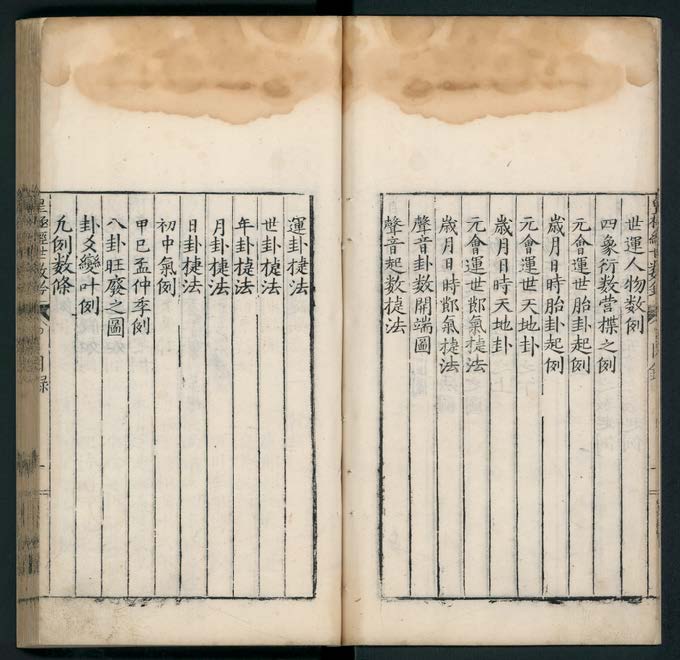 世運人物数例
四象衍数营揲之例
元會運世胎卦起例
歲月日時胎卦起例
元會運世天地卦
歲月日時天地卦
元會運世節氣捷法
歲月日時節氣捷法
聲音卦数開端圖
聲音起数捷法
運卦捷法
世卦捷法
年卦捷法
月卦捷法
日卦捷法
初中氣例
甲巳孟仲季例
八卦旺廢之圖
卦爻變叶例
凡例数條
皇極經世数 目錄